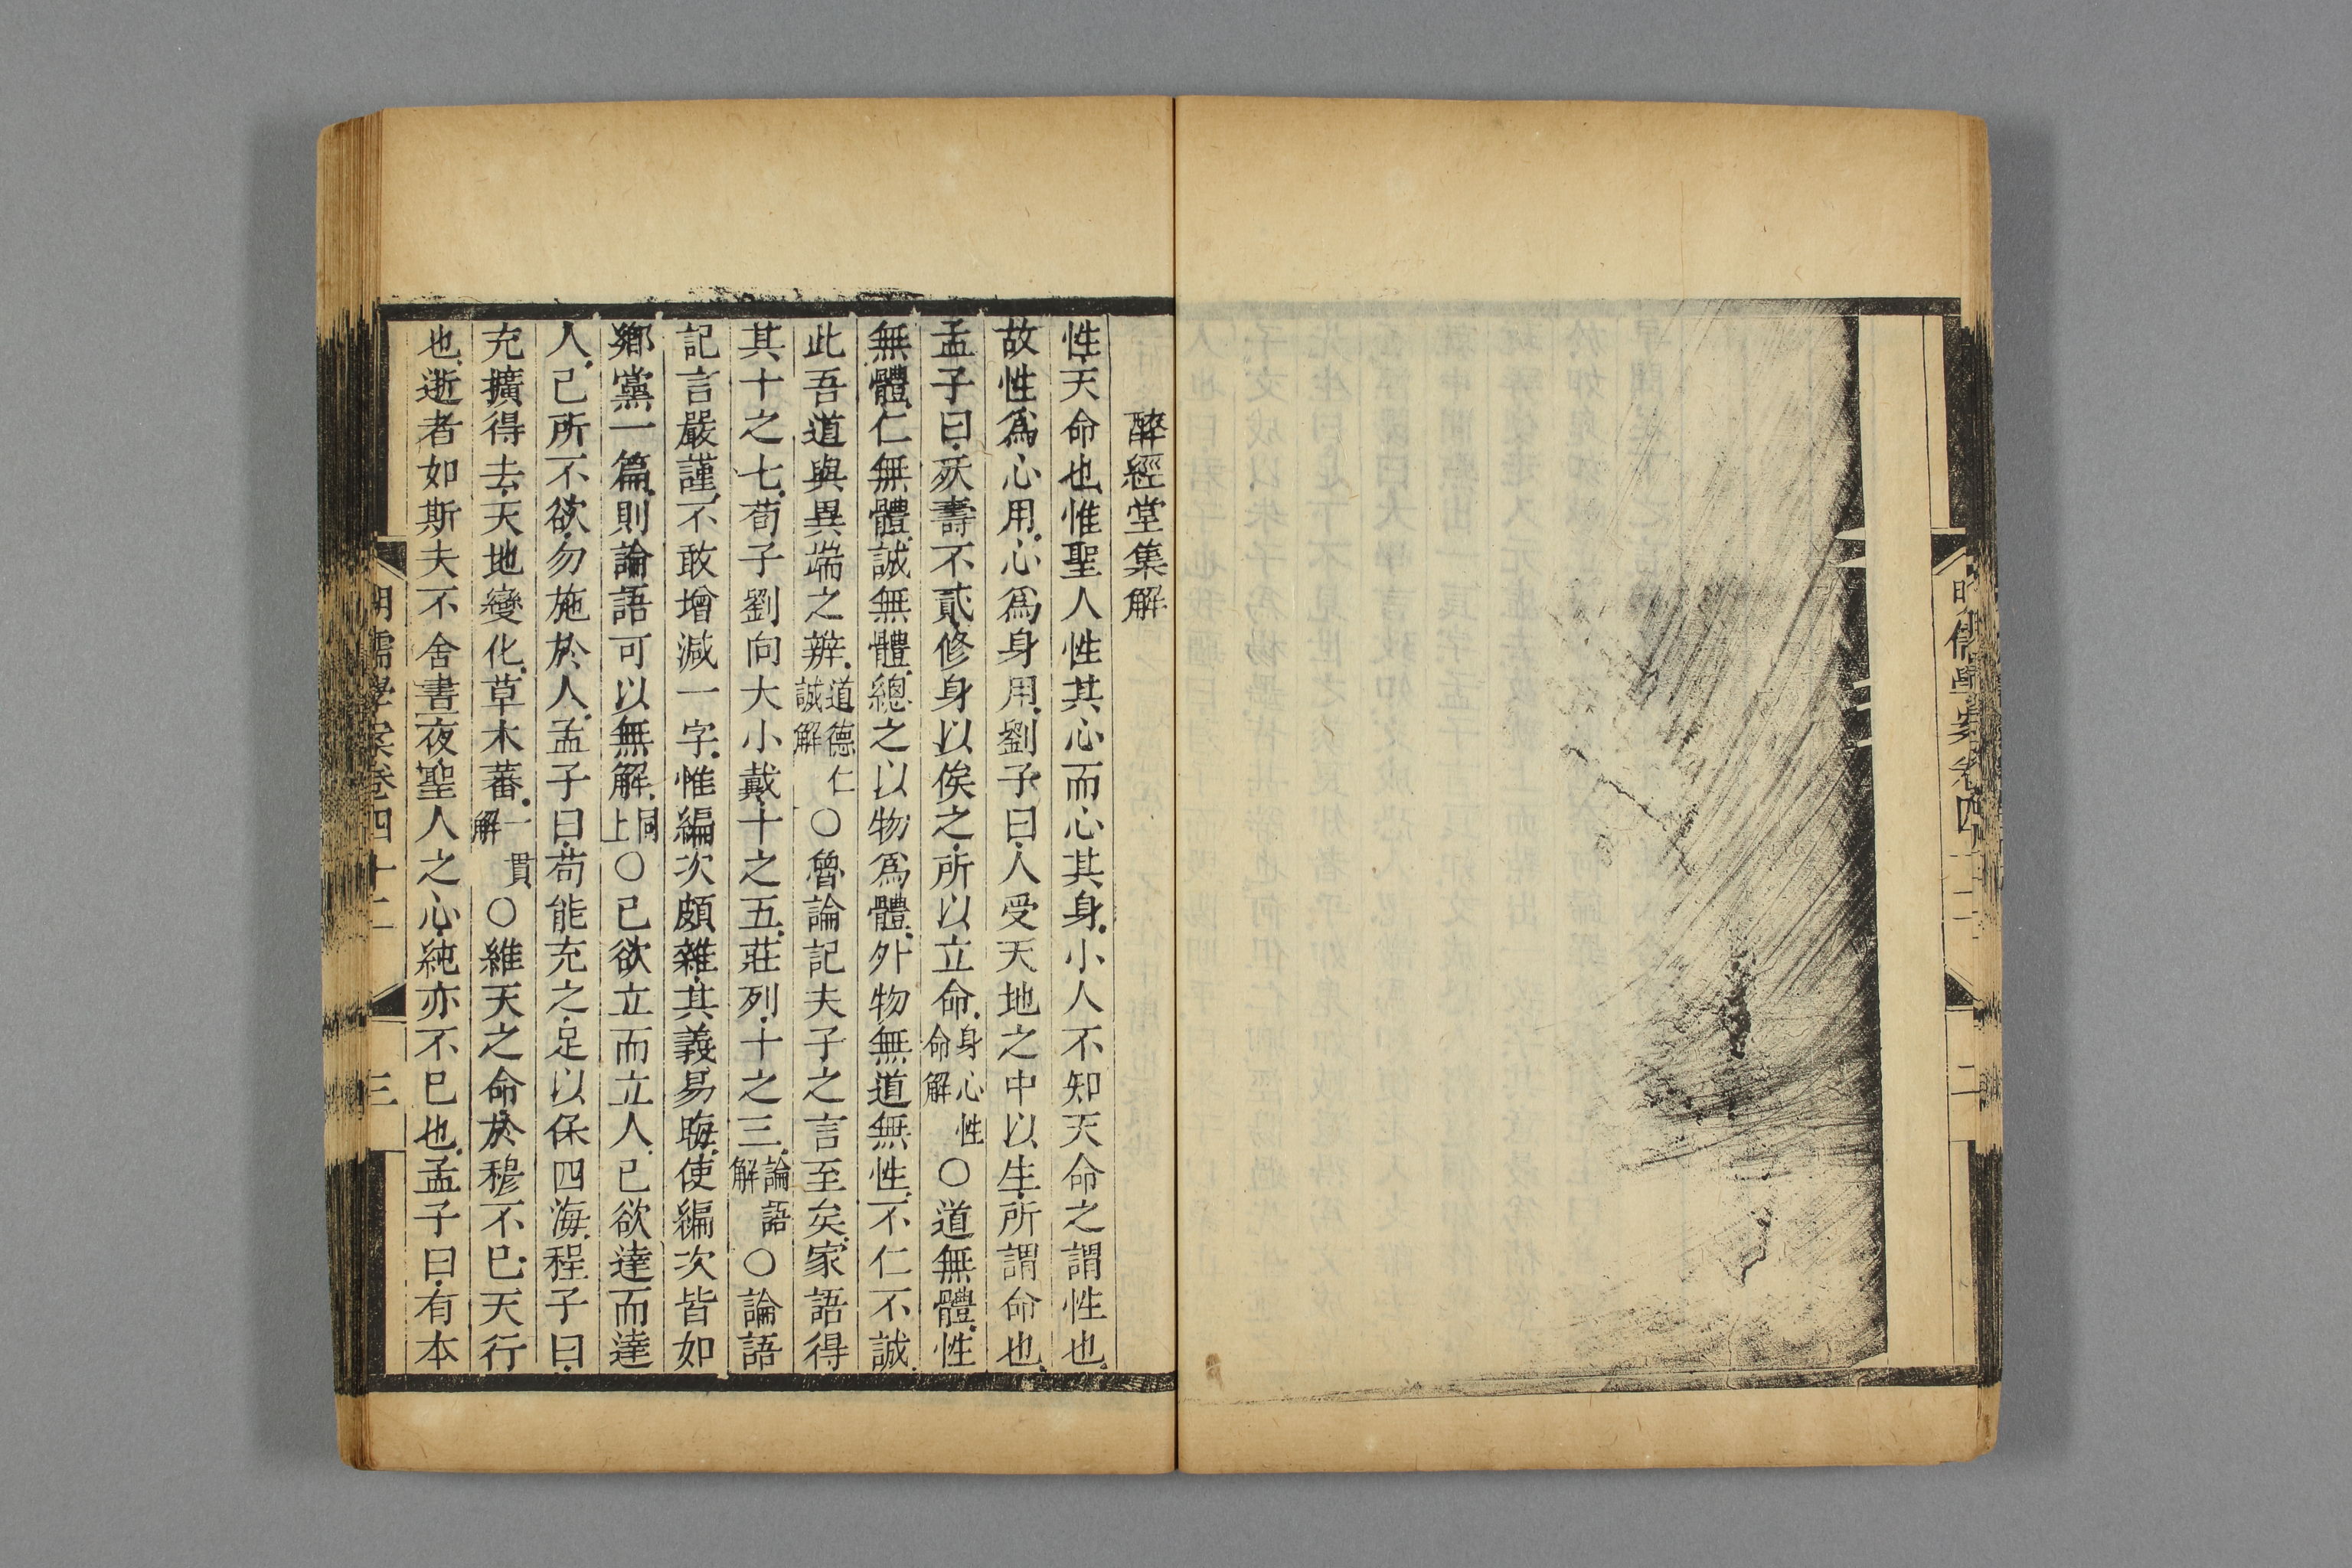 明儒學案卷四十二
二
醉經堂集解
性天命也惟聖人性其心而心其身小人不知天命之謂性也
故性爲心用心爲身用劉子曰人受天地之中以生所謂命也
孟子曰殀壽不貳修身以俟之所以立命身心性命解○道無體性
無體仁無體誠無體總之以物爲體外物無道無性不仁不誠
此吾道與異端之辨道德仁誠解○魯論記夫子之言至矣家語得
其十之七荀子劉向大小戴十之五莊列十之三論語解○論語
記言嚴謹不敢增減一字惟編次頗雜其義易晦使編次皆如
鄉黨一篇則論語可以無解同上○己欲立而立人己欲達而達
人己所不欲勿施於人孟子曰苟能充之足以保四海程子曰
充擴得去天地變化草木蕃一貫解○維天之命於穆不已天行
也逝者如斯夫不舍晝夜聖人之心純亦不已也孟子曰有本
明儒學案卷四十二
三